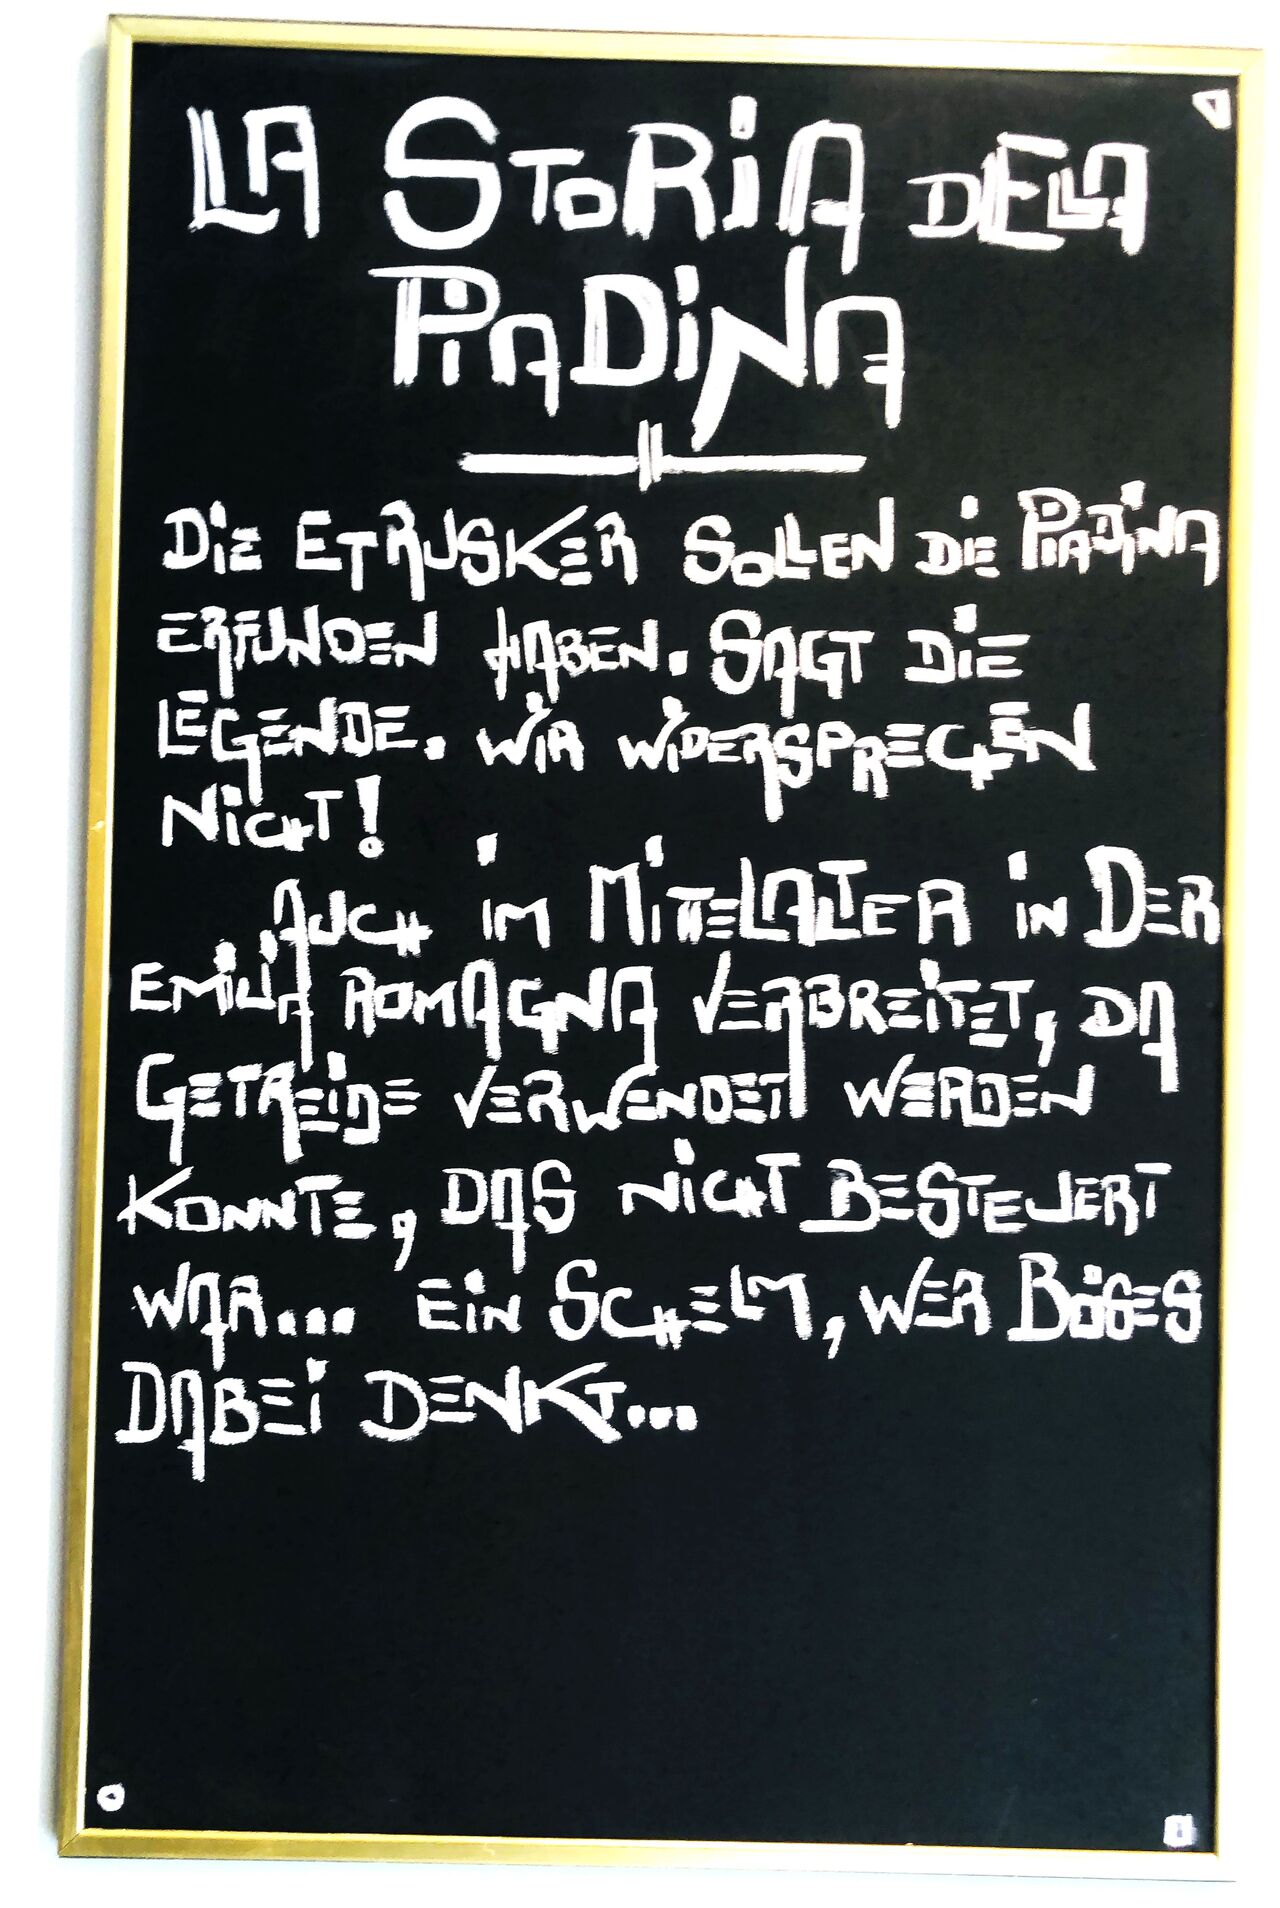 LA STORIA DELLA
PIADINA
DIE ETRUSKER SOLLEN DIE PIADINA
ERFUNDEN HABEN. SAGT DIE
LEGENDE. WIR WIDERSPRECHEN
NICHT!
AUCH IM MITTELALTER IN DER
EMILIA ROMAGNA VERBREITET, DA
GETREIDE VERWENDET WERDEN
KONNTE, DAS NICHT BESTEUERT
WAR... EIN SCHELM, WER BÖSES
DABEI DENKT...